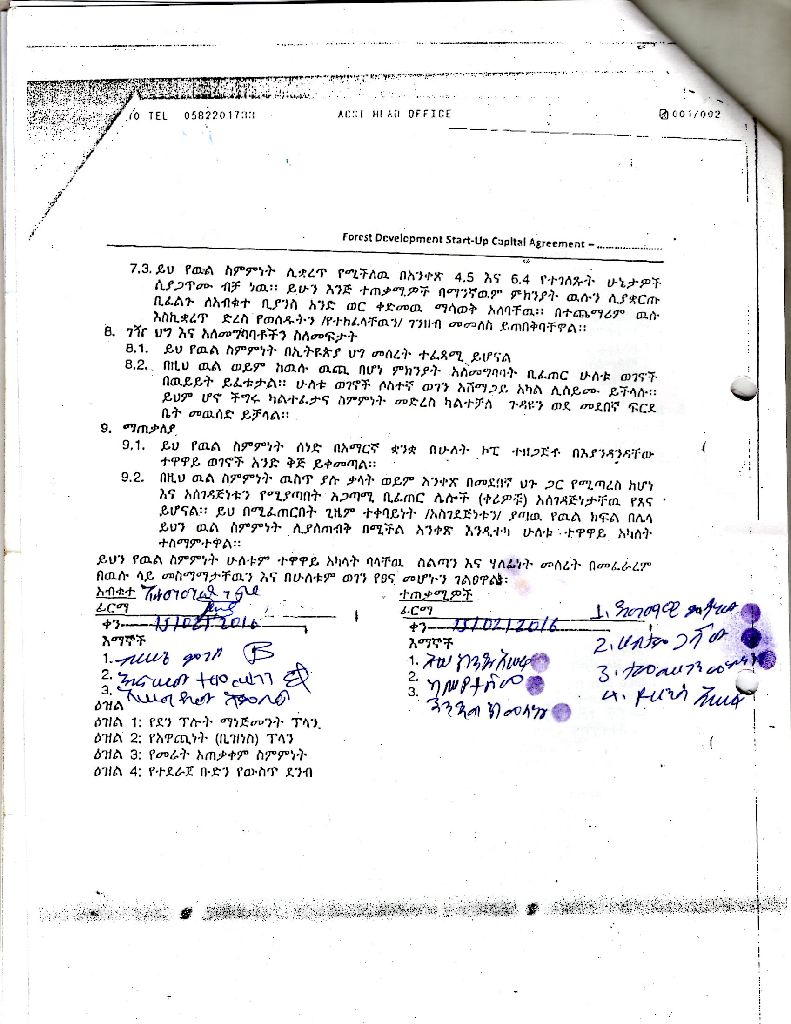 TEL 0582201733 ACSI HEAD OFFICE 001/002
Forest Development Start-Up Capital Agreement – ....................
7.3. ይህ የዉል ስምምነት ሊቋረጥ የሚችለዉ በአንቀጽ 4.5 እና 6.4 የተገለጹት ሁኔታዎች
ሲያጋጥሙ ብቻ ነዉ። ይሁን እንጅ ተጠቃሚዎች በማንኛዉም ምክንያት ዉሱን ሲያቋርጡ
ቢፈልጉ ለአብቁተ ቢያንስ አንድ ወር ቀድመዉ ማሳወቅ አለባቸዉ። በተጨማሪም ዉሉ
እስኪቋረጥ ድረስ የወሰዱትን /የተከፈላቸዉን/ ገንዘብ መመለስ ይጠበቅባቸዋል።
8. ገዥ ህግ እና አለመግባባቶችን ስለመፍታት
8.1. ይህ የዉል ስምምነት በኢትዮጵያ ህግ መሰረት ተፈጻሚ ይሆናል
8.2. በዚህ ዉል ወይም ከዉሉ ዉጪ በሆነ ምክንያት አለመግባባት ቢፈጠር ሁለቱ ወገኖች
በዉይይት ይፈቱታል። ሁለቱ ወገኖች ሶስተኛ ወገን አሸማጋይ አካል ሊሰይሙ ይችላሉ።
ይህም ሆኖ ችግሩ ካልተፈታና ስምምነት መድረስ ካልተቻለ ጉዳዩን ወደ መደበኛ ፍርድ
ቤት መዉሰድ ይቻላል።
9. ማጠቃለያ
9.1. ይህ የዉል ስምምነት ሰነድ በአማርኛ ቋንቋ በሁለት ኮፒ ተዘጋጅቶ በእያንዳንዳቸው
ተዋዋይ ወገኖች አንድ ቅጅ ይቀመጣል።
9.2. በዚህ ዉል ስምምነት ዉስጥ ያሉ ቃላት ወይም አንቀጽ በመደበኛ ህጉ ጋር የሚጣረስ ከሆነ
እና አስገዳጅነቱን የሚያጣበት አጋጣሚ ቢፈጠር ሌሎች (ቀሪዎቹ) አስገዳጅነታቸዉ የጸና
ይሆናል። ይህ በሚፈጠርበት ጊዜም ተቀባይነት /አስገደጅነቱን/ ያጣዉ የዉል ክፍል በሌላ
ይህን ዉል ስምምነት ሊያስጠብቅ በሚችል አንቀጽ እንዲተካ ሁለቱ ተዋዋይ አካላት
ተስማምተዋል።
ይህን የዉል ስምምነት ሁለቱም ተዋዋይ አካላት ባላቸዉ ስልጣን እና ሃላፊነት መሰረት በመፈራረም
በዉሉ ላይ መስማማታቸዉን እና በሁለቱም ወገን የፀና መሆኑን ገልፀዋል፡
አብቁተ
ተጠቃሚዎች
ፊርማ
ፊርማ
ቀን 15/02/2016
ቀን 15/02/2016
እማኞች
እማኞች
1.
2.
3.
1.
2.
3.
1.
2.
3.
4.
ዕዝል
ዕዝል 1: የደን ፕሎት ማነጅመንት ፕላን
ዕዝል 2: የአዋጪነት (ቢዝነስ) ፕላን
ዕዝል 3: የመሬት አጠቃቀም ስምምነት
ዕዝል 4: የተደራጀ ቡድን የውስጥ ደንብ